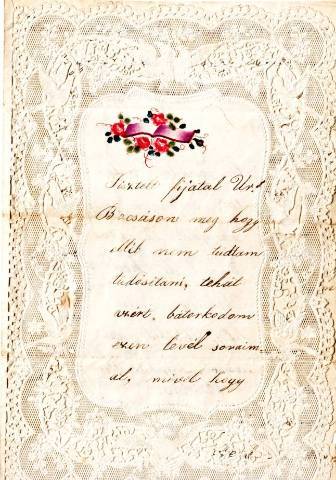 Tisztelt fijatal Úr!
Bocsáson meg hogy
illik nem tudtam
tudósitani, tehát
azért, bátorkodom
ezen levél soraim
al, mivel hogy